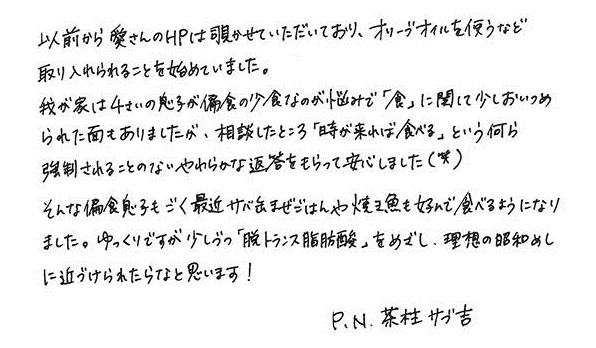 以前から愛さんのHPは覗かせていただいており、オリーブオイルを使うなど
取り入れられることを始めていました。
我が家は4さいの息子が偏食の少食なのが悩みで「食」に関して少しおいつめ
られた面もありましたが、相談したところ「時が来れば食べる」という何ら
強制されることのないやわらかな返答をもらって安心しました(笑)
そんな偏食息子もごく最近サバ缶まぜごはんや焼き魚も好んで食べるようになり
ました。ゆっくりですが少しづつ「脱トランス脂肪酸」をめざし、理想の昭和めし
に近づけられたらなと思います!
P.N. 茶柱サブ吉